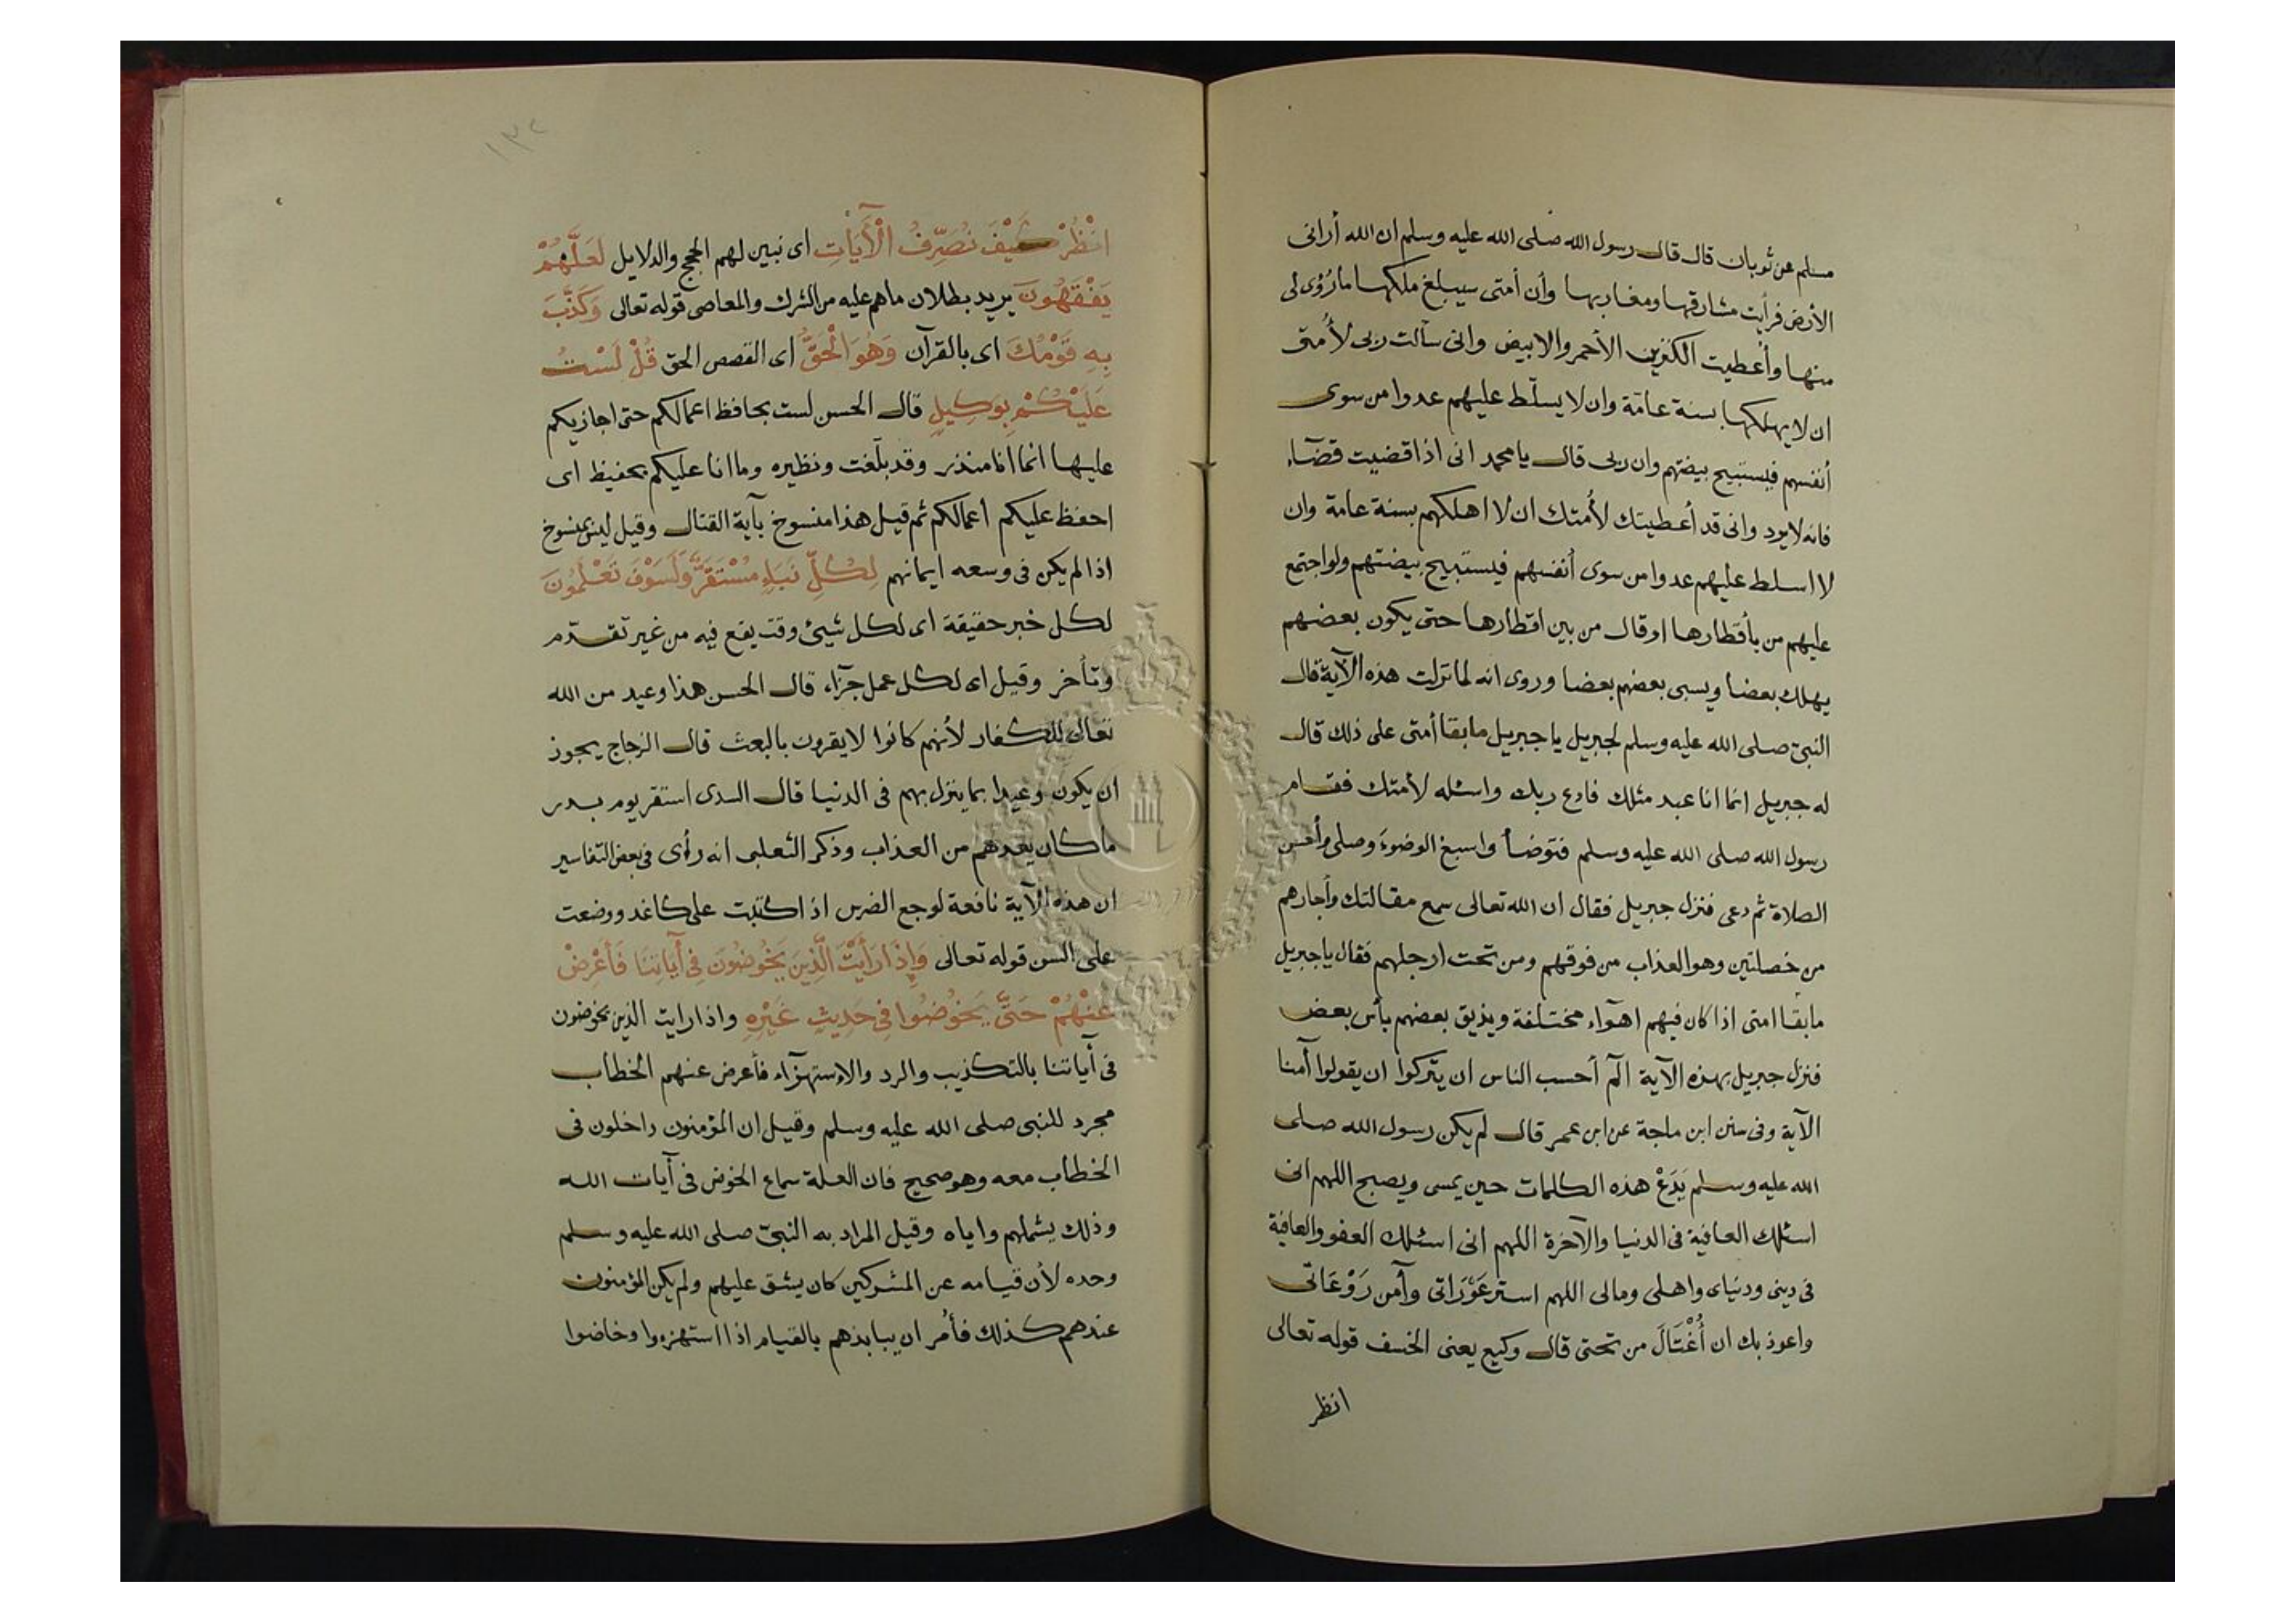 مسلم عن ثوبان قال قال رسول الله صلى الله عليه وسلم ان الله أرانى
الأرض فرأيت مشارقها ومغاربها وأن أمتى سيبلغ ملكها ما زوى لى
منها وأعطيت الكنزين الأحمر والابيض وانى سألت ربى لأمتى
ان لا يهلكها بسنة عامّة وان لا يسلّط عليهم عدوا من سوى
أنفسهم فيستبيح بيضتهم وان ربى قال يا محمد انى اذا قضيت قضآء
فانه لا يرد وانى قد أعطيتك لأمتك ان لا اهلكهم بسنة عامة وان
لا اسلط عليهم عدوا من سوى أنفسهم فيستبيح بيضتهم ولو اجتمع
عليهم من بأقطارها او قال من بين اقطارها حتى يكون بعضهم
يهلك بعضا ويسبى بعضهم بعضا وروى انه لما نزلت هذه الآية قال
النبىّ صلى الله عليه وسلم لجبريل يا جبريل ما بقا أمتى على ذلك قال
له جبريل انما انا عبد مثلك فادع ربك واسئله لأمتك فقام
رسول الله صلى الله عليه وسلم فتوضأ واسبغ الوضوء وصلى وأحسن
الصلاة ثم دعى فنزل جبريل فقال ان الله تعالى سمع مقالتك وأجارهم
من خصلتين وهو العذاب من فوقهم ومن تحت ارجلهم فقال يا جبريل
ما بقا امتى اذا كان فيهم اهوآء مختلفة ويذيق بعضهم بأس بعض
فنزل جبريل بهذه الآية آلم أحسب الناس ان يتركوا ان يقولوا آمنا
الآية وفى سنن ابن ماجة عن ابن عمر قال لم يكن رسول الله صلى
الله عليه وسلم يَدَعْ هذه الكلمات حين يمسى ويصبح اللهم انى
اسئلك العافية فى الدنيا والآخرة اللهم انى اسئلك العفو والعافية
فى دينى ودنياى واهلى ومالى اللهم استر عَوْرَاتى وآمن رَوْعَاتى
واعوذ بك ان أُغْتَالَ من تحتى قال وكيع يعنى الخسف قوله تعالى
انظر
١٣٢
انْظُرْ كَيْفَ نُصَرِّفُ الْأَيَاتِ اى نبين لهم الحجج والدلايل لَعَلَّهُمْ
يَفْقَهُونَ يريد بطلان ما هم عليه من الشرك والمعاصى قوله تعالى وَكَذَّبَ
بِهِ قَوْمُكَ اى بالقرآن وَهُوَ الْحَقُّ اى القصص الحق قُلْ لَسْتُ
عَلَيْكُمْ بِوَكِيلٍ قال الحسن لست بحافظ اعمالكم حتى اجازيكم
عليها انما انا منذر وقد بلّغت ونظيره وما انا عليكم بحفيظ اى
احفظ عليكم أعمالكم ثم قيل هذا منسوخ بآية القتال وقيل ليس بمنسوخ
اذا لم يكن فى وسعه ايمانهم لِكُلِّ نَبَاءٍ مُسْتَقَرٌّ وَلَسَوْفَ تَعْلَمُونَ
لكل خبر حقيقة اى لكل شيئ وقت يقع فيه من غير تقدّم
وتأخر وقيل اى لكل عمل جزآء قال الحسن هذا وعيد من الله
تعالى للكفار لأنهم كانوا لا يقرون بالبعث قال الزجاج يجوز
ان يكون وعيدا بما ينزل بهم فى الدنيا قال السدى استقر يوم بدر
ما كان يعدهم من العذاب وذكر الثعلبى انه رأى فى بعض التفاسير
ان هذه الآية نافعة لوجع الضرس اذا كتبت على كاغد ووضعت
على السن قوله تعالى وَإِذَا رَأَيْتَ الَّذِينَ يَخُوضُونَ فِى آيَاتِنَا فَأَعْرِضْ
عَنْهُمْ حَتَّى يَخُوضُوا فِى حَدِيثٍ غَيْرِهِ واذا رايت الذين يخوضون
فى أياتنا بالتكذيب والرد والإستهزآء فأعرض عنهم الخطاب
مجرد للنبى صلى الله عليه وسلم وقيل ان المؤمنون داخلون فى
الخطاب معه وهو صحيح فان العلة سماع الخوض فى آيات الله
وذلك يشملهم واياه وقيل المراد به النبىّ صلى الله عليه وسلم
وحده لأن قيامه عن المشركين كان يشق عليهم ولم يكن المؤمنون
عندهم كذلك فأمُر ان يبابذهم بالقيام اذا استهزءوا وخاضوا